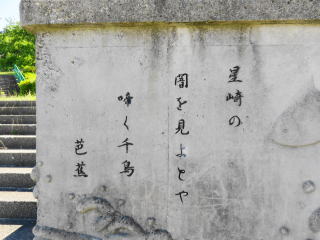 星崎の
闇を見よとや
啼く千鳥
芭蕉